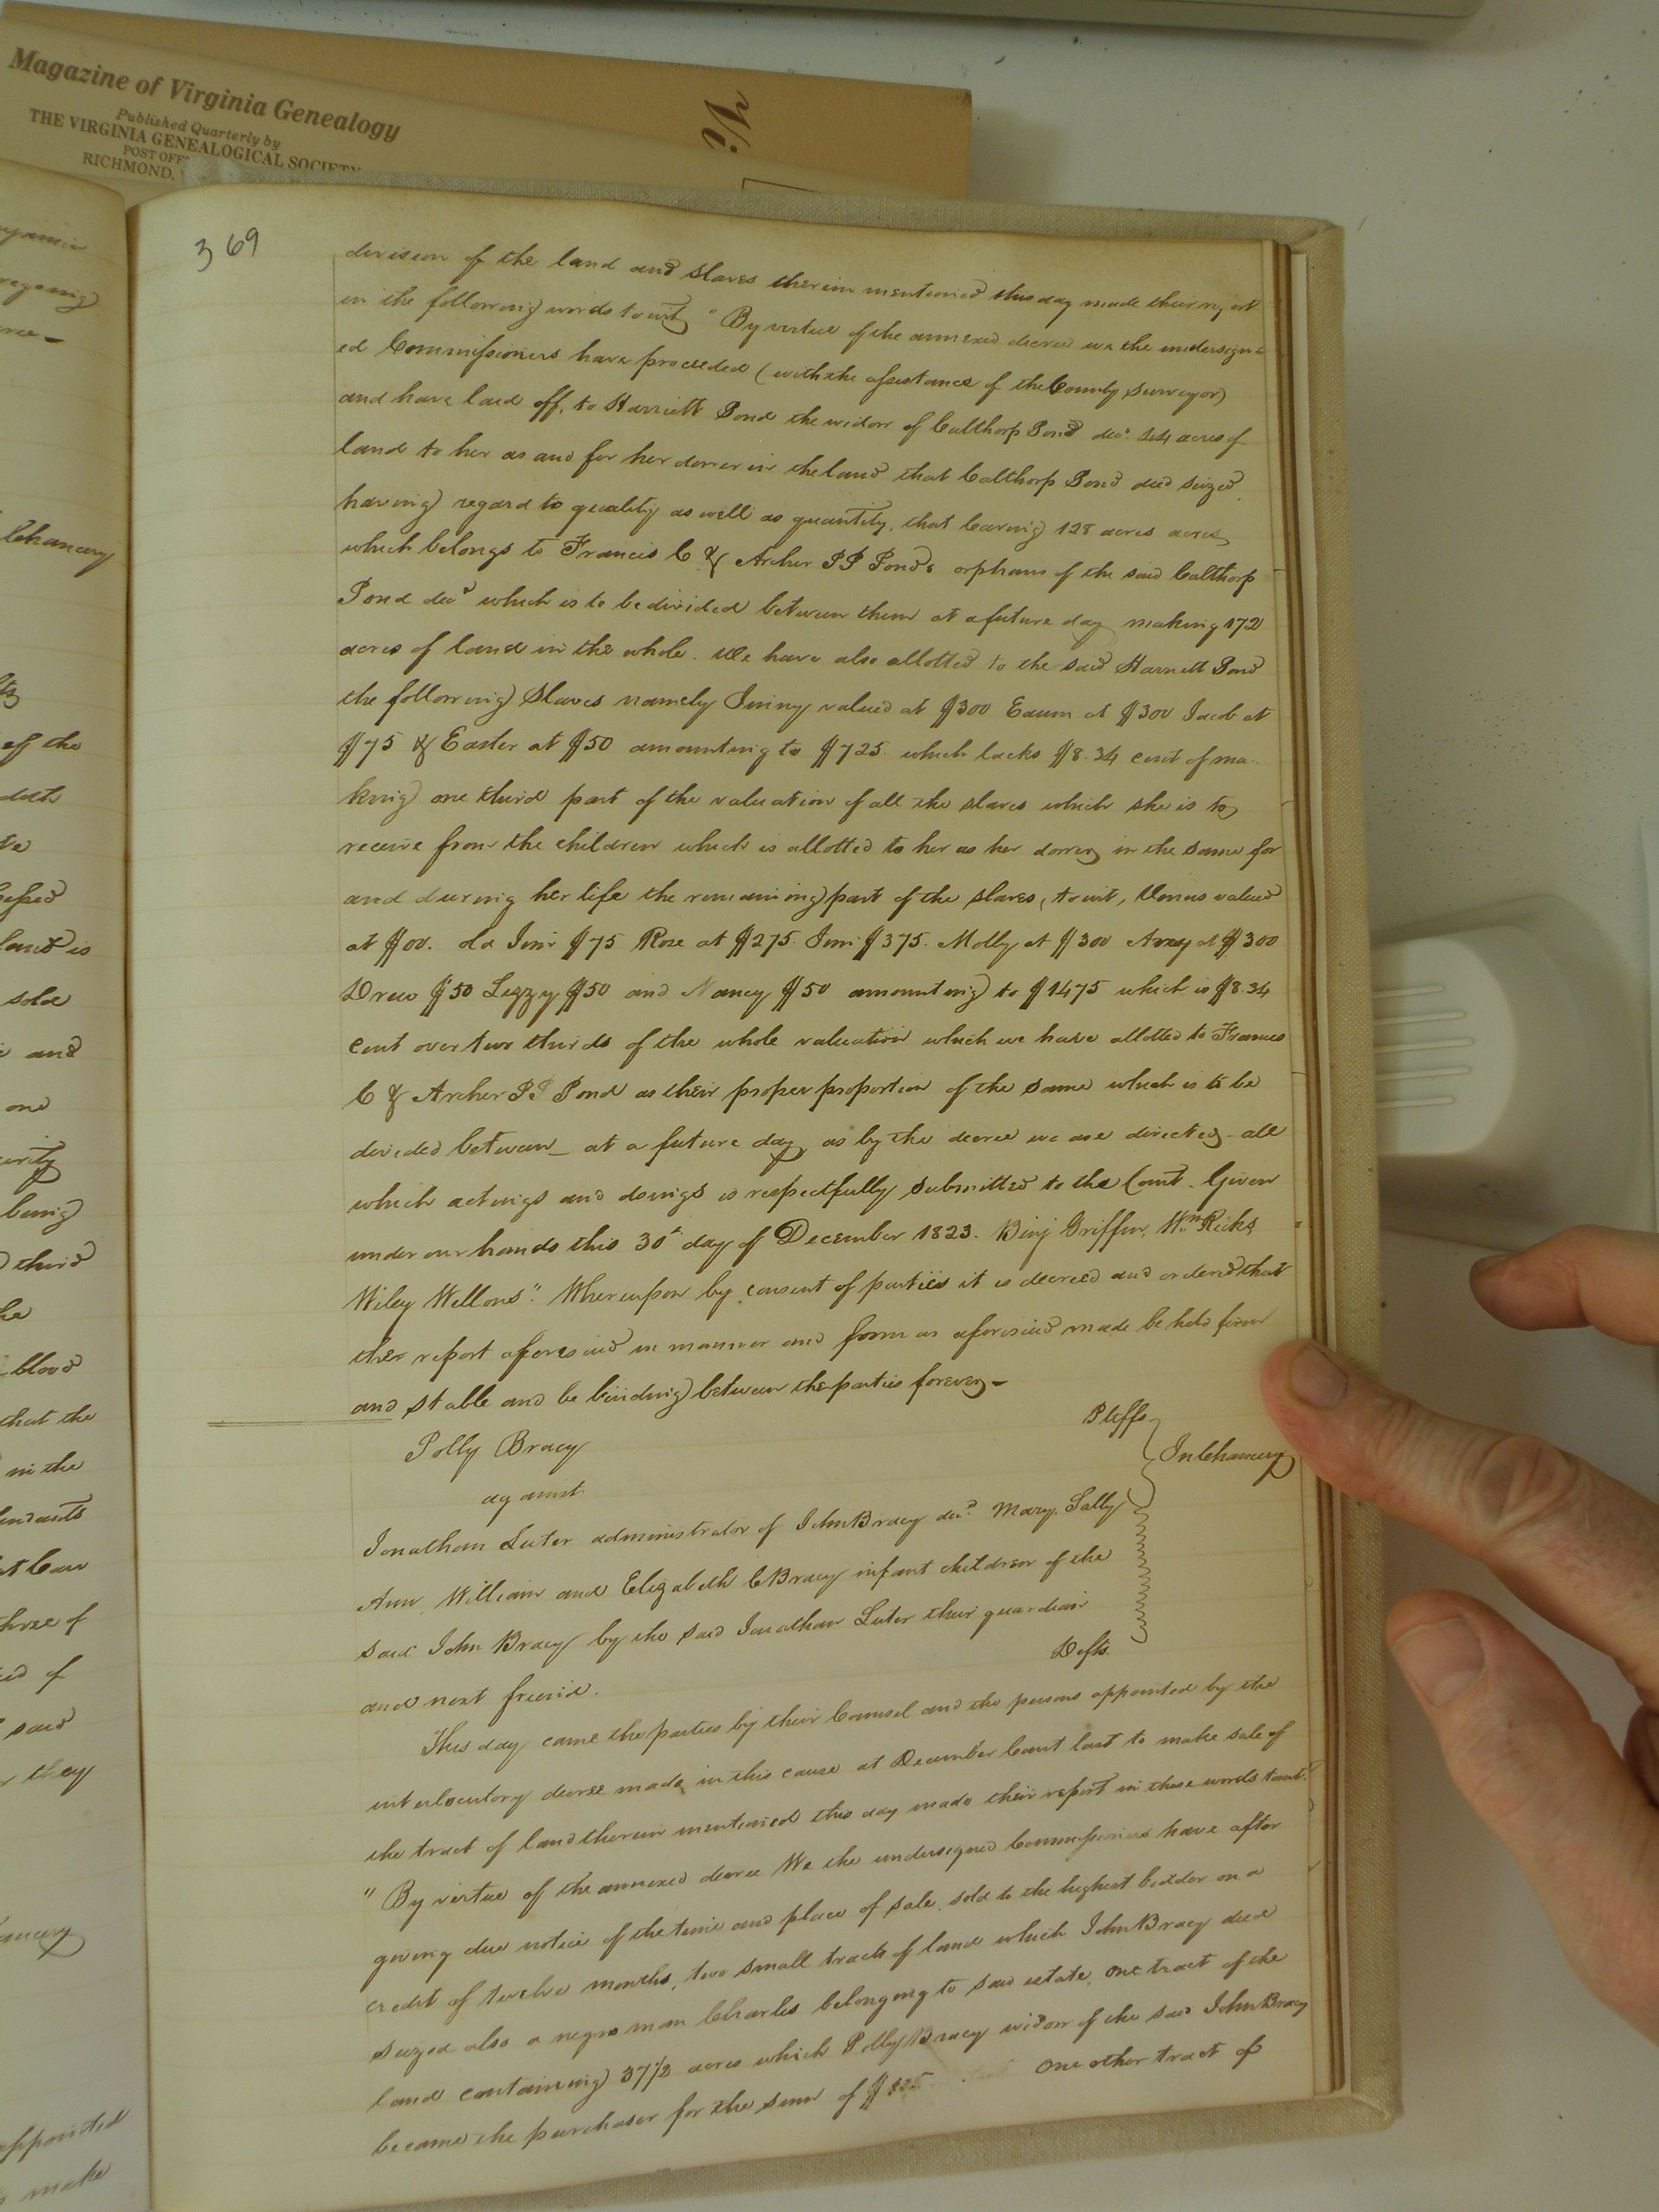 Magazine of Virginia Genealogy
Published Quarterly by
THE VIRGINIA GENEALOGICAL SOCIETY
POST OFF
RICHMOND,
369
division of the land and slaves therein mentioned this day made their report
in the following words to wit, "By virtue of the annexed decree we the undersign=
ed Commissioners have proceeded (with the assistance of the County Surveyor)
and have laid off, to Harriett Pond the widow of Calthorp Pond decd. acres of
land to her as and for her dower in the land that Calthorp Pond died seized,
having regard to quality as well as quantity, that leaving 128 acres acres
which belongs to Francis C & Archer P P Ponds orphans of the said Calthorp
Pond decd which is to be divided between them at a future day making 172
acres of land in the whole. We have also allotted to the said Harriett Pond
the following Slaves namely Jinny valued at $300 Exum at $300 Jacob at
$75 & Easter at $50 amounting to $725 which lacks $8.34 cent of ma-
king one third part of the valuation of all the slaves which she is to
receive from the children which is allotted to her as her dower in the same for
and during her life the remaining part of the slaves, to wit, Venus valued
at $00. Jim $75 Rose at $275 Jim $375. Molly at $300 at $300
Drew $50 Legzy $50 and Nancy $50 amounting to $1475 which is $8.34
cent over two thirds of the whole valuation which we have allotted to Frances
C & Archer P P Pond as their proper proportion of the same which is to be
divided between_ at a future day as by the decree we are directed - all
which actings and doings is respectfully submitted to the Court. Given
under our hands this 30th day of December 1823. Benj Griffin, Wm Ricks,
Wiley Wellons". Whereupon by consent of parties it is decreed and ordered that
the report aforesaid in manner and form as aforesaid made be held firm
and stable and be binding between the parties forever -
Polly Bracy Pltffs
against In Chancery
Jonathan Luter administrator of John Bracy decd. Mary, Sally
Ann, William and Elizabeth C Bracy infant children of the
said John Bracy by the said Jonathan Luter their guardian
and next friend. Defts.
This day came the parties by their Counsel and the persons appointed by the
interlocutory decree made in this cause at December Court last to make sale of
the tract of land therein mentioned this day made their report in these words towit.
"By virtue of the annexed decree We the undersigned Commissioners have after
giving due notice of the time and place of sale, sold to the highest bidder on a
credit of twelve months, two small tracts of land which John Bracy died
seized also a negro man Charles belonging to said estate, one tract of the
land containing 37½ acres which Polly Bracy widow of the said John Bracy
became the purchaser for the sum of one other tract of